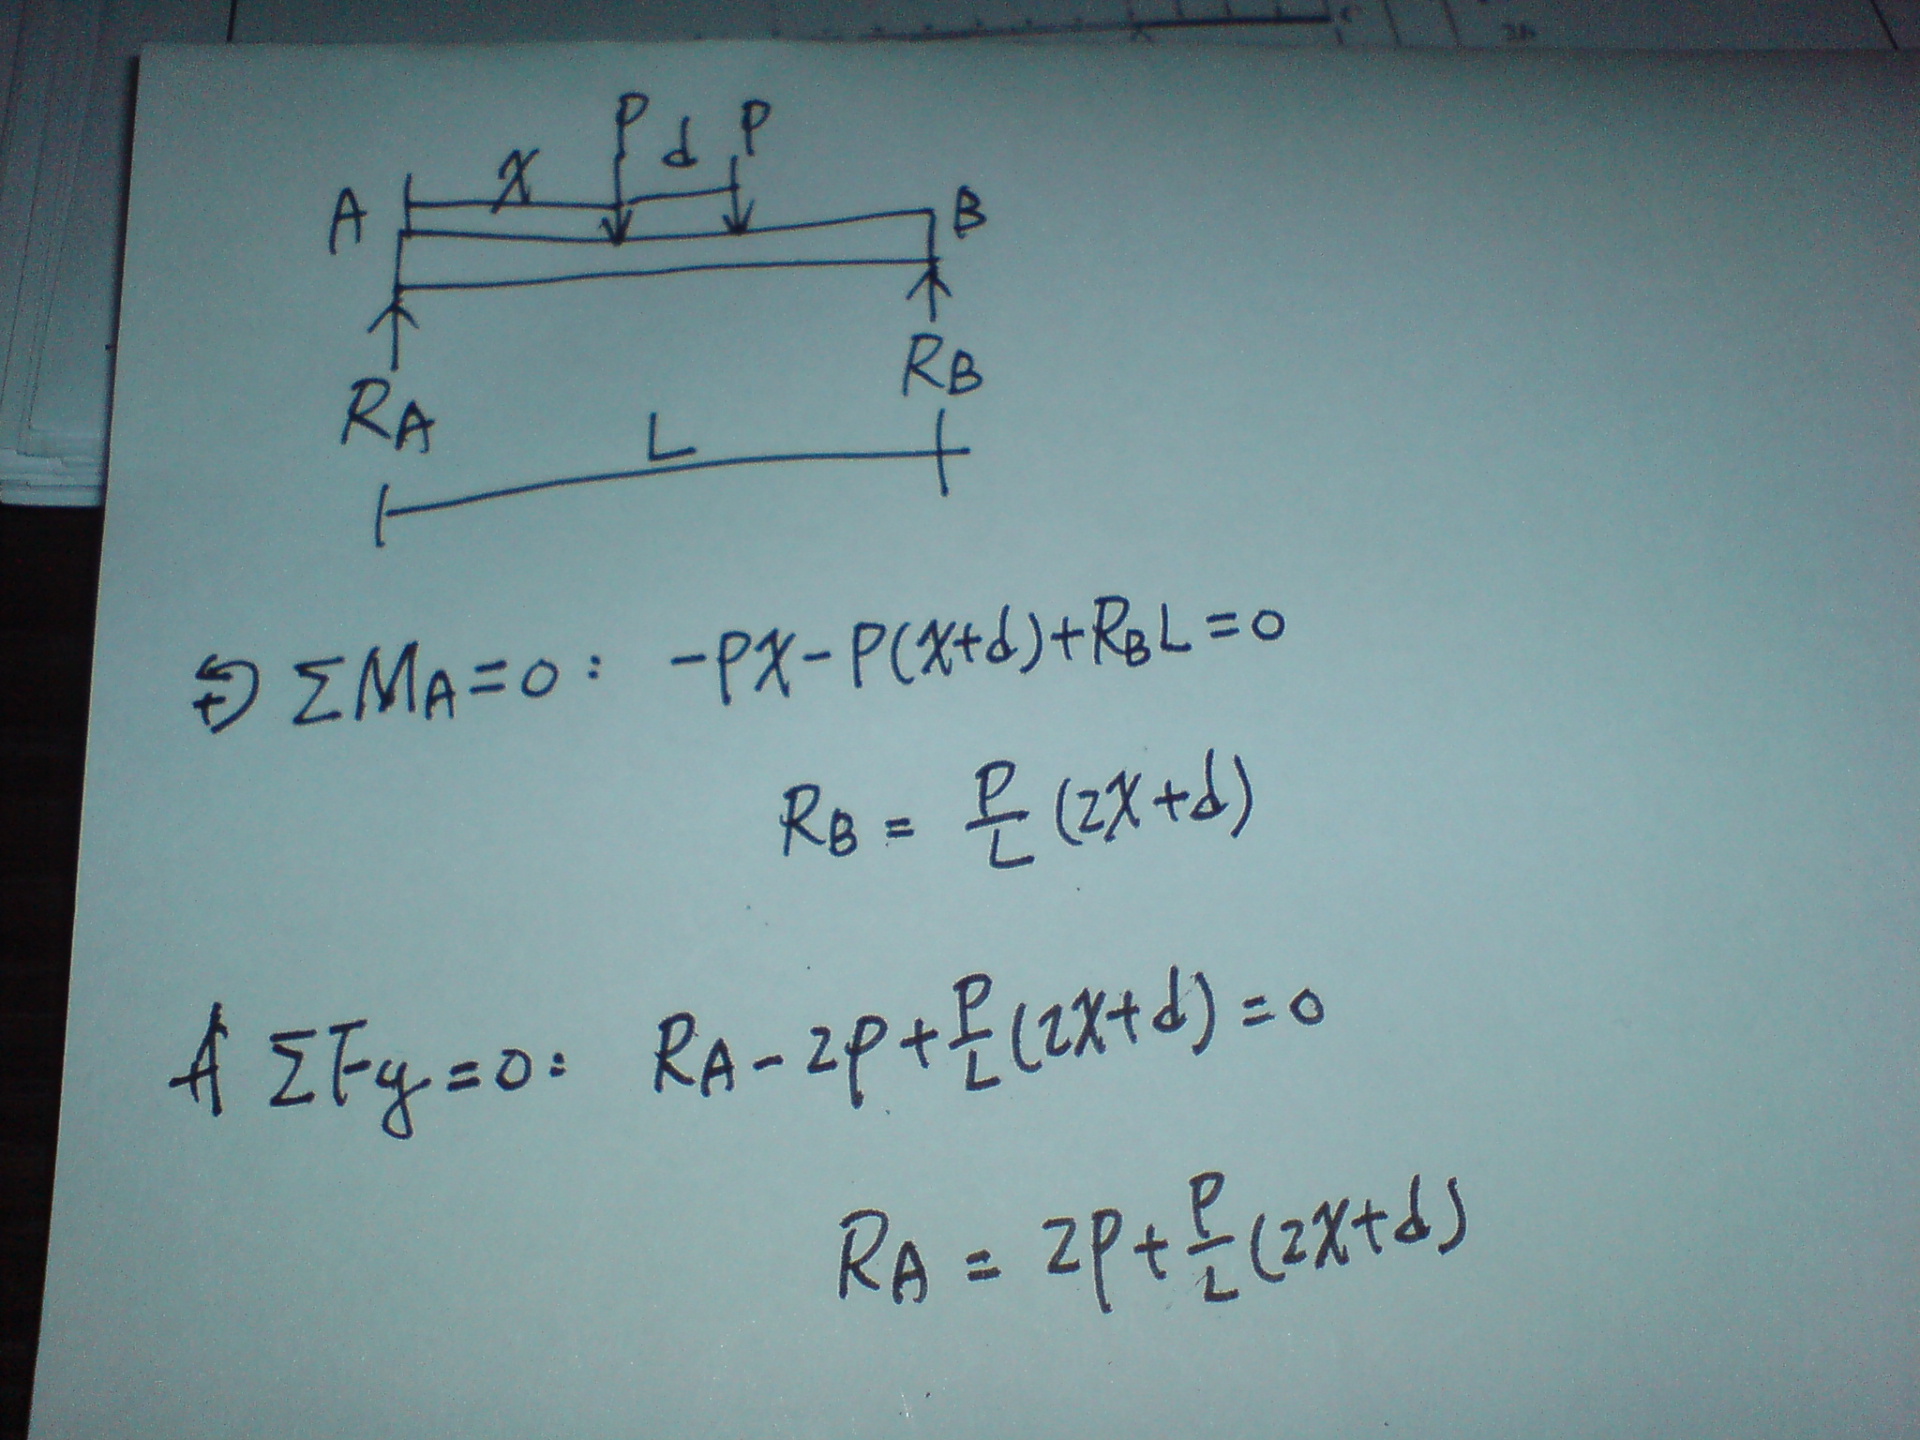 P d P
x
A B
R_A R_B
L
↺+ ΣM_A=0: -Px-P(x+d)+R_B L=0
R_B = P/L (2x+d)
+↑ ΣFy=0: R_A-2P+P/L(2x+d)=0
R_A = 2P+P/L(2x+d)